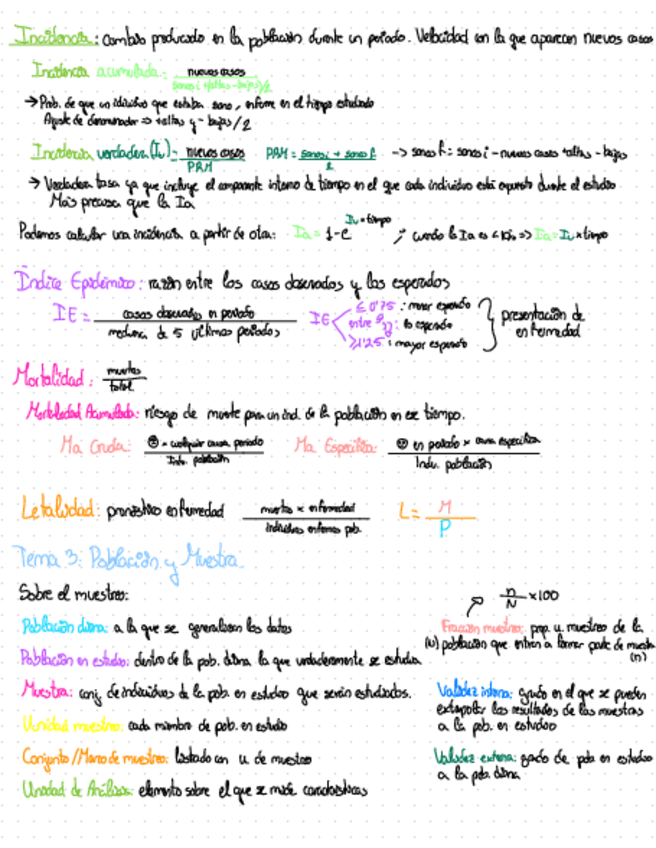 Incidencia: cambio producido en la población durante un periodo. Velocidad con la que aparecen nuevos casos
Incidencia acumulada: nuevos casos
sanos i + (altas - bajas)/2
→ Prob. de que un individuo que estaba sano, enferme en el tiempo estudiado
Ajuste de denominador => +altas y - bajas /2
Incidencia verdadera (Iv) = nuevos casos / PRM PRM = sanos i + sanos f / 2 -> sanos f: sanos i - nuevos casos + altas - bajas
→ Verdadera tasa ya que incluye el componente interno de tiempo en el que cada individuo está expuesto durante el estudio
Más precisa que la Ia
Podemos calcular una incidencia a partir de otra: Ia = 1-e Iv × tiempo ; cuando la Ia es < 10% => Ia = Iv × tiempo
Indice Epidémico: razón entre los casos observados y los esperados
IE = casos observados en periodo / mediana de 5 últimos periodos
IE ≤ 0'75: menor esperado
entre ambos: lo esperado
≥ 1'25: mayor esperado
presentación de enfermedad
Mortalidad: muertos / total
Mortalidad Acumulada: riesgo de muerte para un ind. de la población en ese tiempo.
Ma Cruda: × cualquier causa periodo / Indv. población Ma Específica: en periodo × causa específica / Indv. población
Letalidad: pronóstico enfermedad muertos × enfermedad / individuos enfermos pob. L = M / P
Tema 3: Población y Muestra
Sobre el muestreo:
n/N ×100
Población diana: a la que se generalizan los datos
Fracción muestreo: prop. u. muestreo de la
(N) población que entran a formar parte de muestra
(n)
Población en estudio: dentro de la pob. diana la que verdaderamente se estudia
Muestra: conj. de individuos de la pob. en estudio que serán estudiados.
Validez interna: grado en el que se pueden
extrapolar los resultados de las muestras
a la pob. en estudio
Unidad muestreo: cada miembro de pob. en estudio
Conjunto / Marco de muestreo: listado con u. de muestreo
Validez externa: grado de pob en estudio
a la pob. diana
Unidad de Análisis: elemento sobre el que se mide características